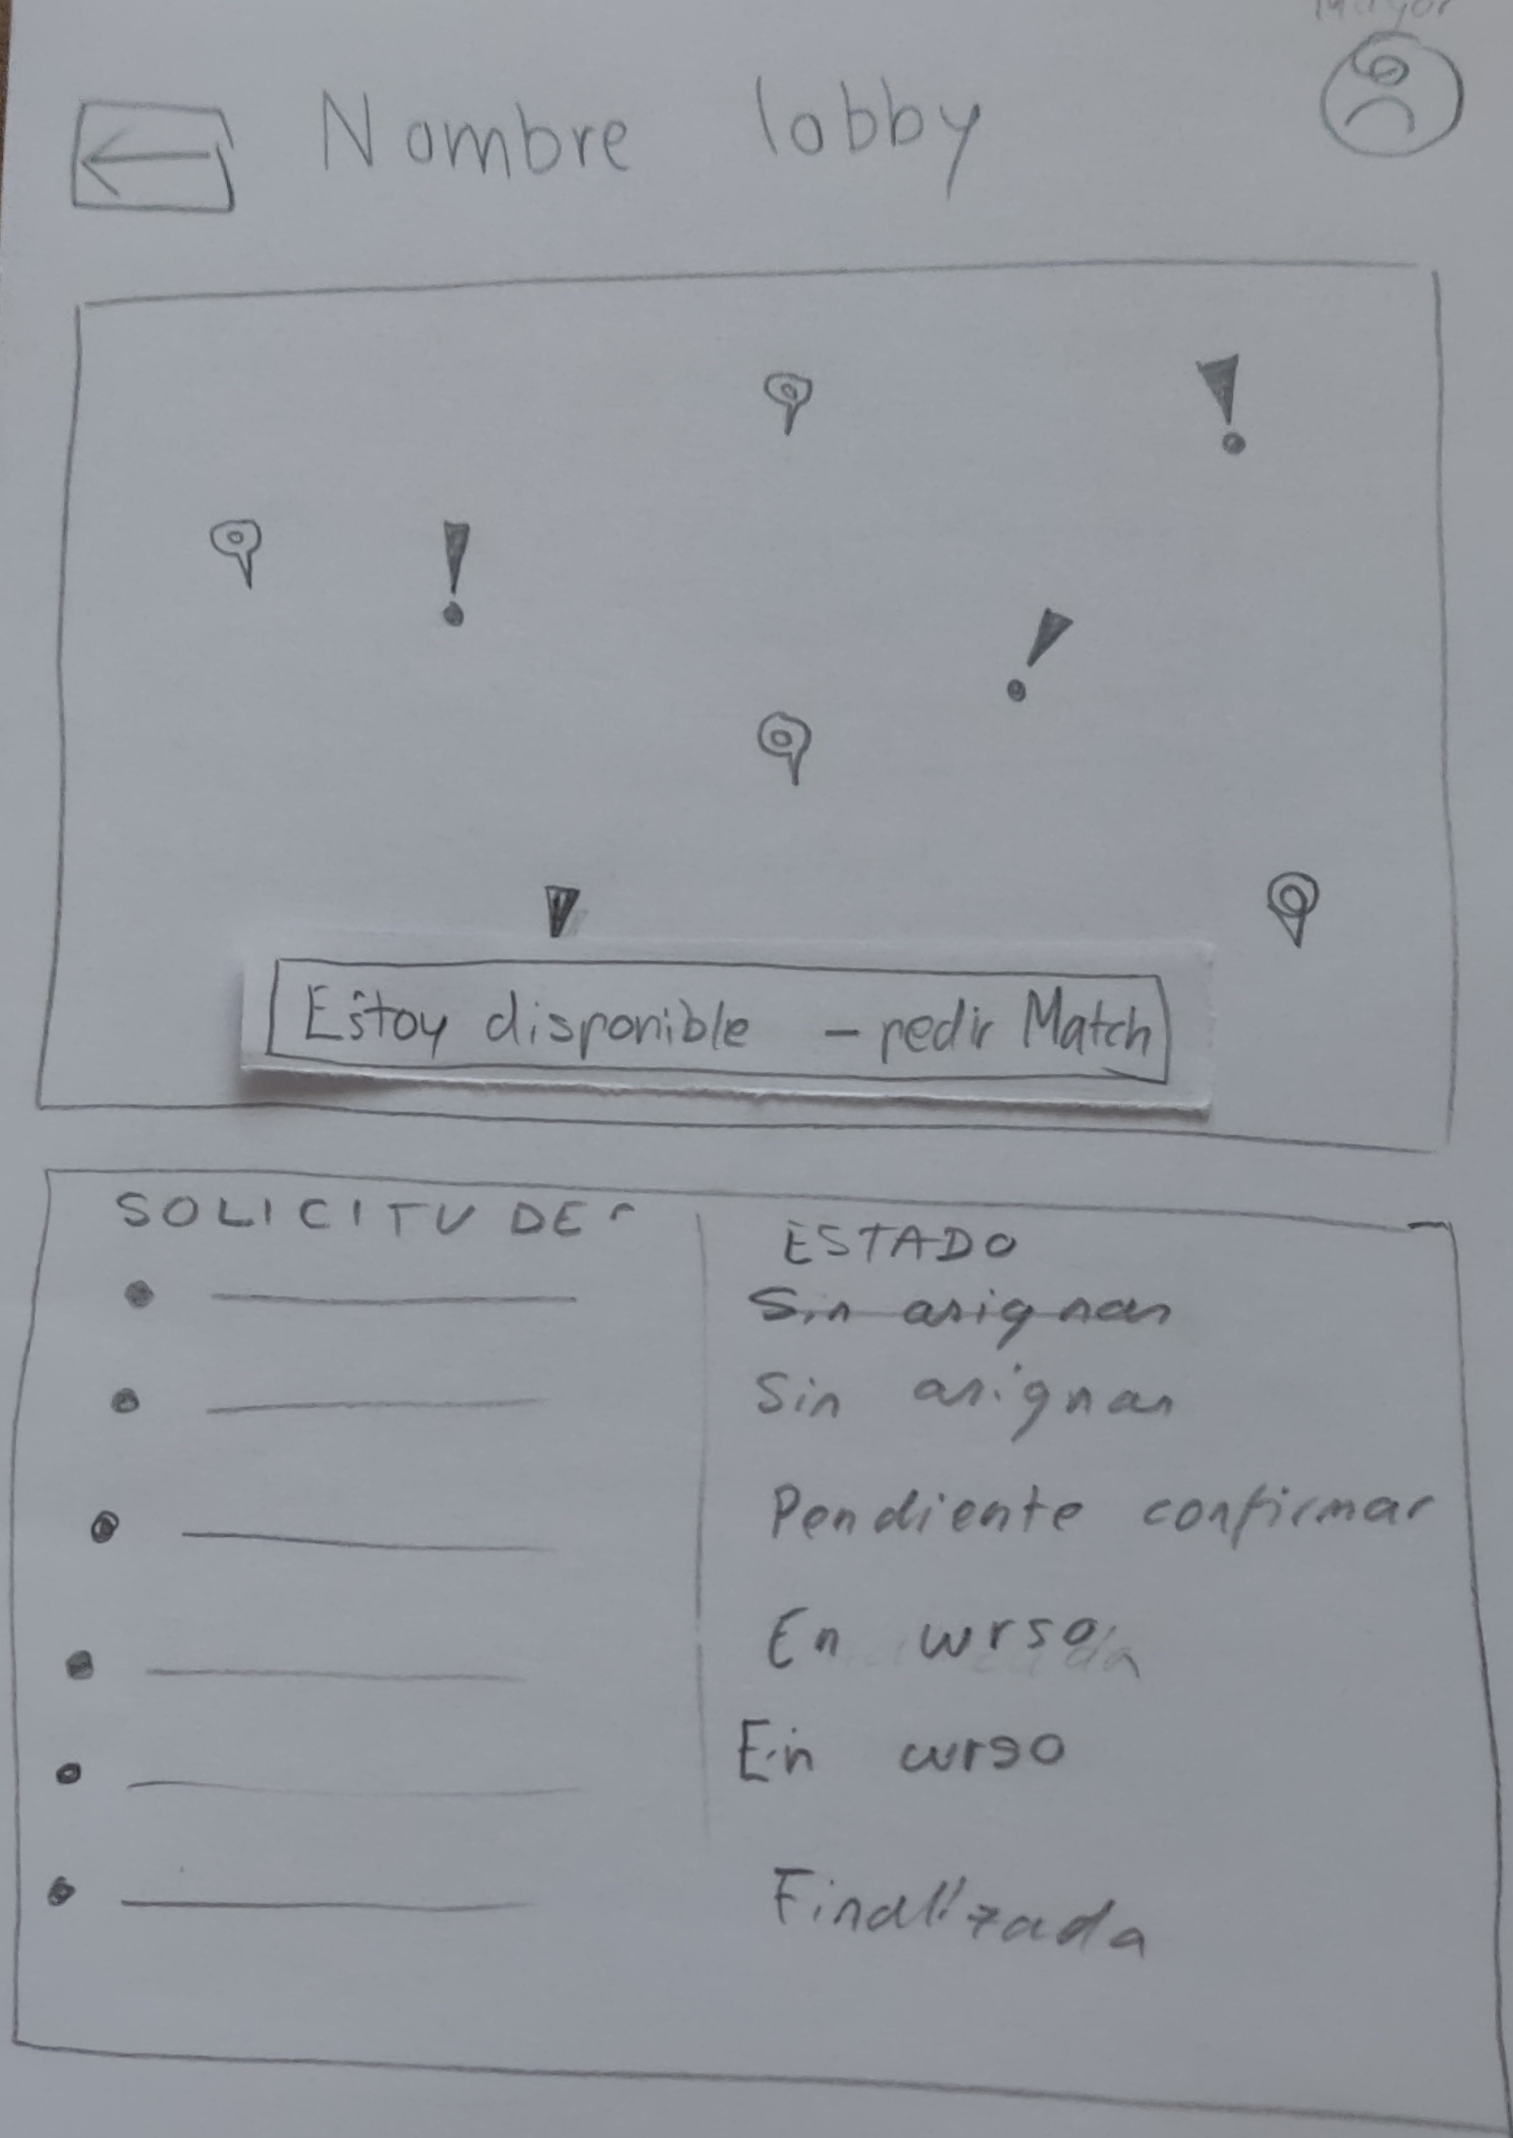 Mayor
Nombre lobby
Estoy disponible - pedir Match
SOLICITUDES
ESTADO
Sin asignar
Sin asignar
Pendiente confirmar
En curso
En curso
Finalizada